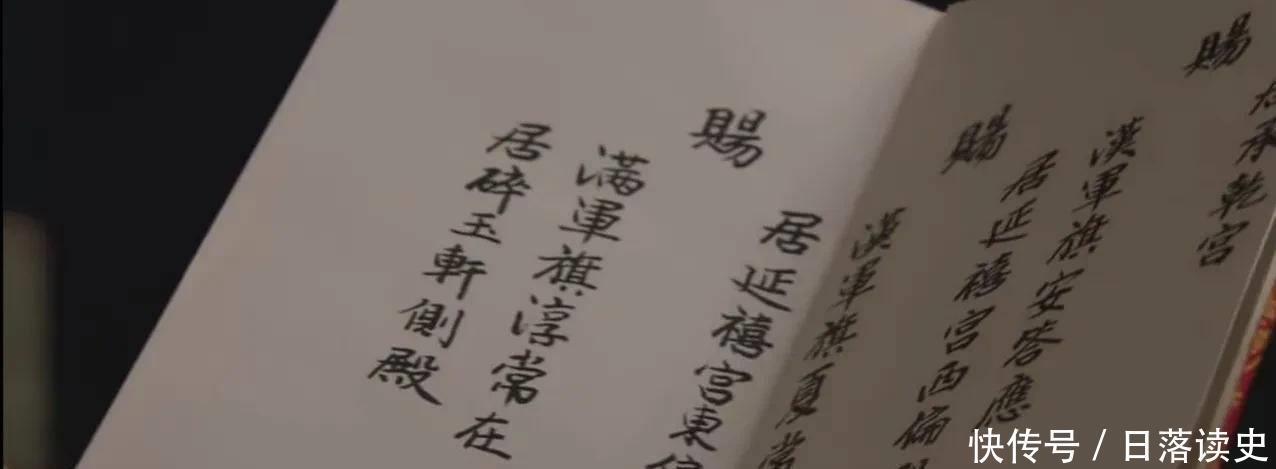 承乾宮
賜
漢軍旗安答應
居延禧宮西偏
賜
漢軍旗夏常
居延禧宮東偏
賜
满軍旗淳常在
居碎玉軒側殿
快传号 / 日落读史